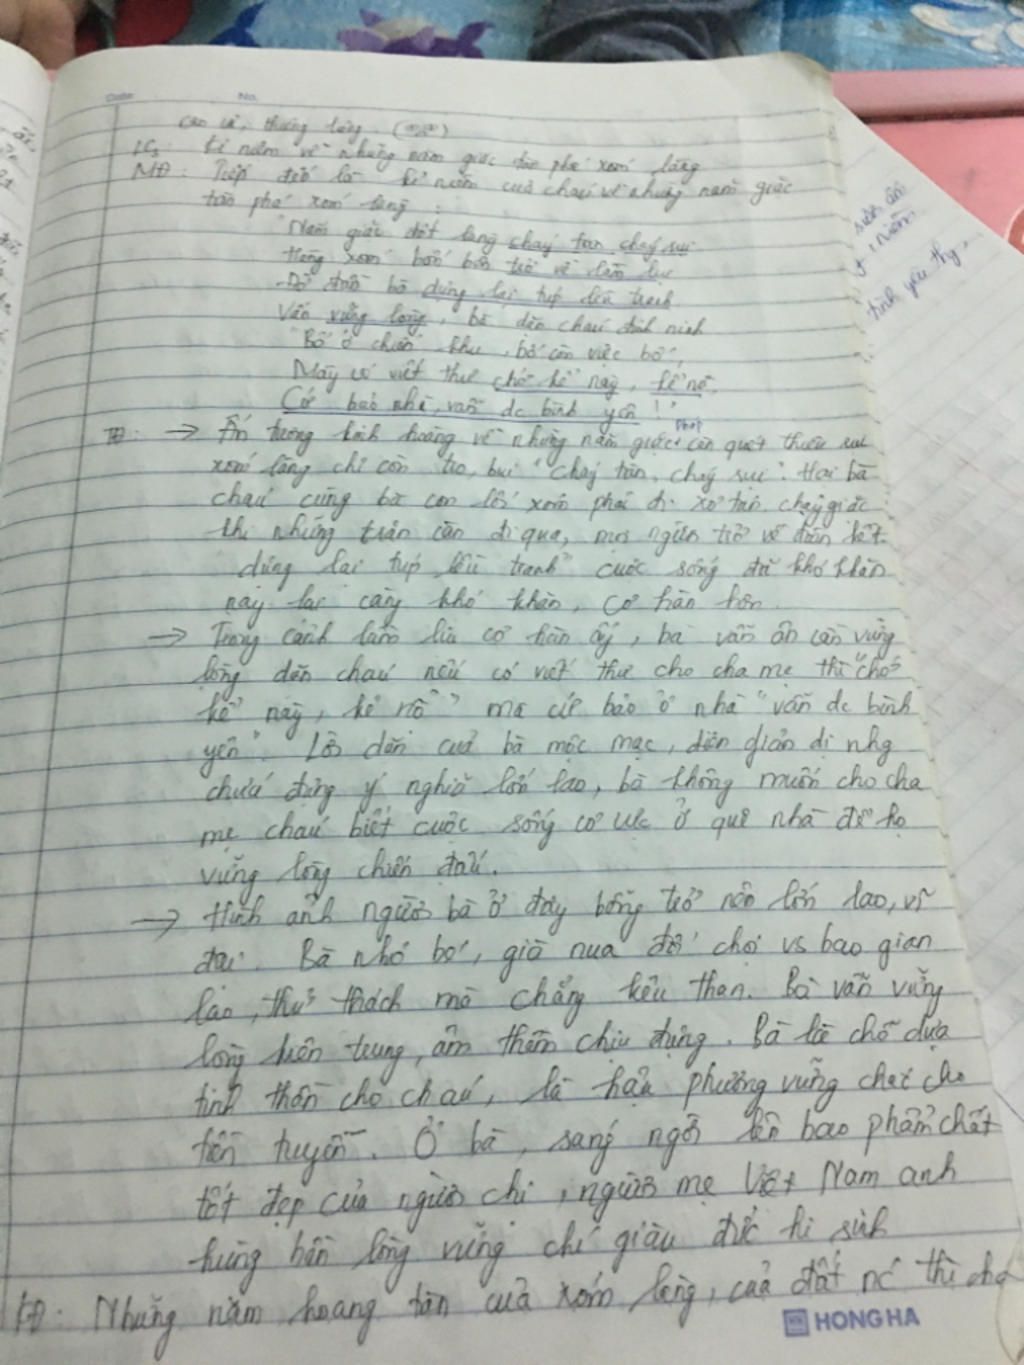 Date No.
cao cả, thiêng liêng.
LC3: Kỉ niệm về những năm giặc tàn phá xóm làng
MĐ: Tiếp đến là kỉ niệm của cháu về những năm giặc
tàn phá xóm làng:
"Năm giặc đốt làng cháy tàn cháy rụi
Hàng xóm bốn bên trở về lầm lụi
Đỡ đần bà dựng lại túp lều tranh
Vẫn vững lòng, bà dặn cháu đinh ninh
"Bố ở chiến khu, bố còn việc bố,
Mày có viết thư chớ kể này, kể nọ
Cứ bảo nhà vẫn đc bình yên!"
→ Ấn tượng kinh hoàng về những năm giặc Pháp càn quét thiêu rụi
xóm làng chỉ còn tro, bụi "cháy tàn, cháy rụi". Hai bà
cháu cùng bà con lối xóm phải đi sơ tán, chạy giặc
thì những trận càn đi qua, mọi người trở về đoàn kết
dựng lại túp lều tranh" cuộc sống đã khó khăn
nay lại càng khó khăn, cơ hàn hơn.
→ Trong cảnh lầm lũi cơ hàn ấy, bà vẫn ân cần vững
lòng dặn cháu nếu có viết thư cho cha mẹ thì "chớ
kể này, kể nọ" mà cứ bảo ở nhà "vẫn đc bình
yên". Lời dặn của bà mộc mạc, đơn giản dị nhg
chứa đựng ý nghĩa lớn lao, bà không muốn cho cha
mẹ cháu biết cuộc sống cơ cực ở quê nhà để họ
vững lòng chiến đấu.
→ Hình ảnh người bà ở đây bỗng trở nên lớn lao, vĩ
đại. Bà nhỏ bé, già nua đối chọi vs bao gian
lao, thử thách mà chẳng kêu than. Bà vẫn vững
lòng kiên trung, âm thầm chịu đựng. Bà là chỗ dựa
tinh thần cho cháu, là hậu phương vững chắc cho
tiền tuyến. Ở bà, sáng ngời lên bao phẩm chất
tốt đẹp của người chị, người mẹ Việt Nam anh
hùng bền lòng vững chí giàu đức hi sinh
KĐ: Những năm hoang tàn của xóm làng, của đất nc thì chá
HONG HA
tình yêu thg,